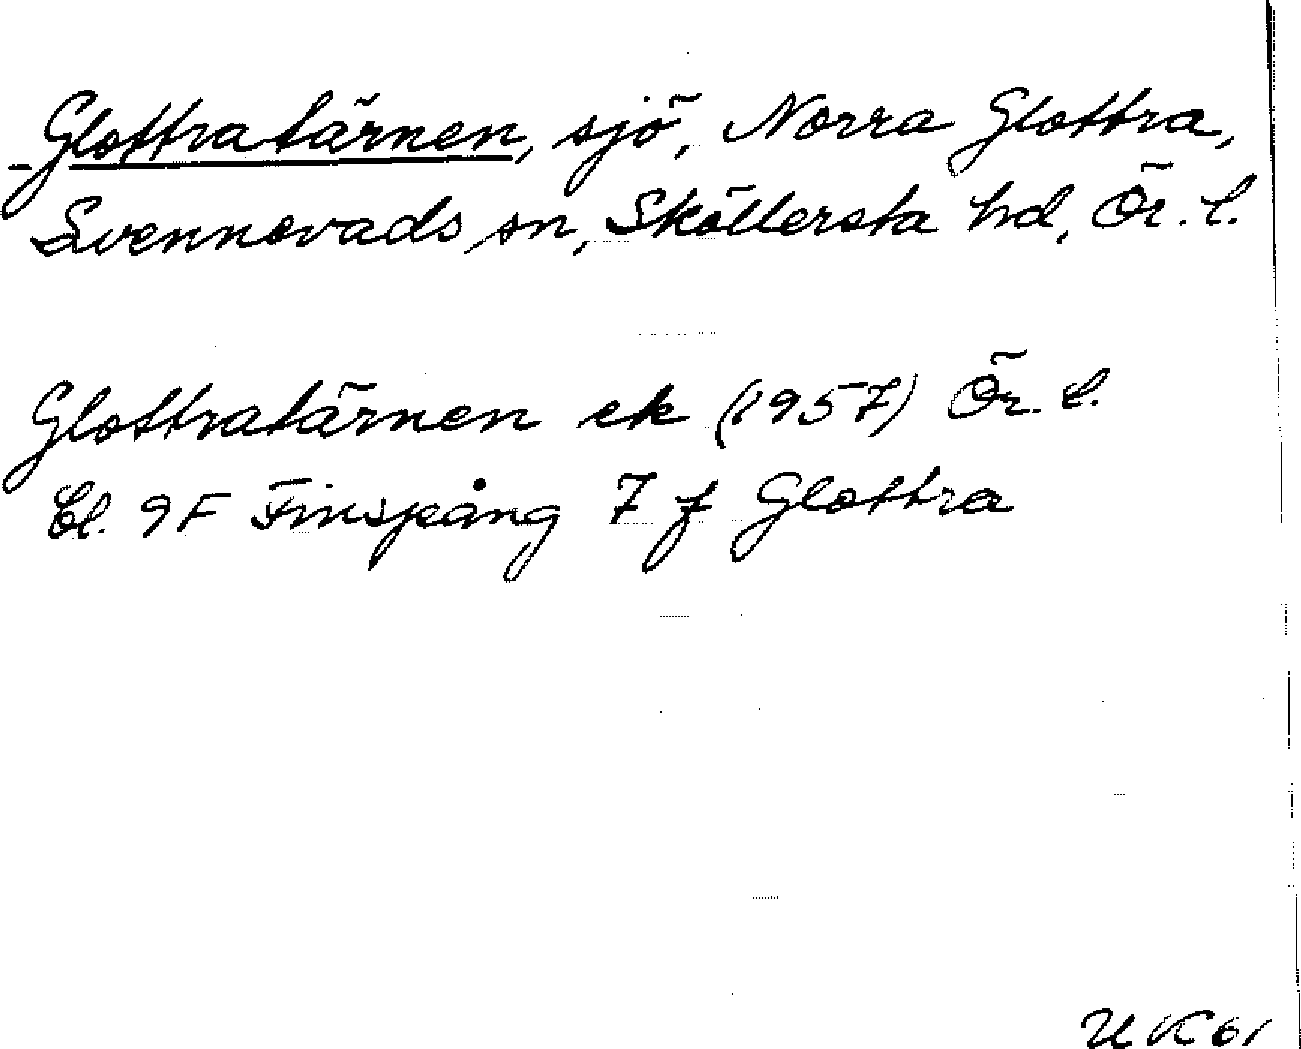 Glottratärnen, sjö, Norra Glottra,
Svennevads sn, Sköllersta hd, Ör. l.
Glottratärnen ek (1957) Ör. l.
Bl. 9F Finspång 7 f Glottra
UK 61